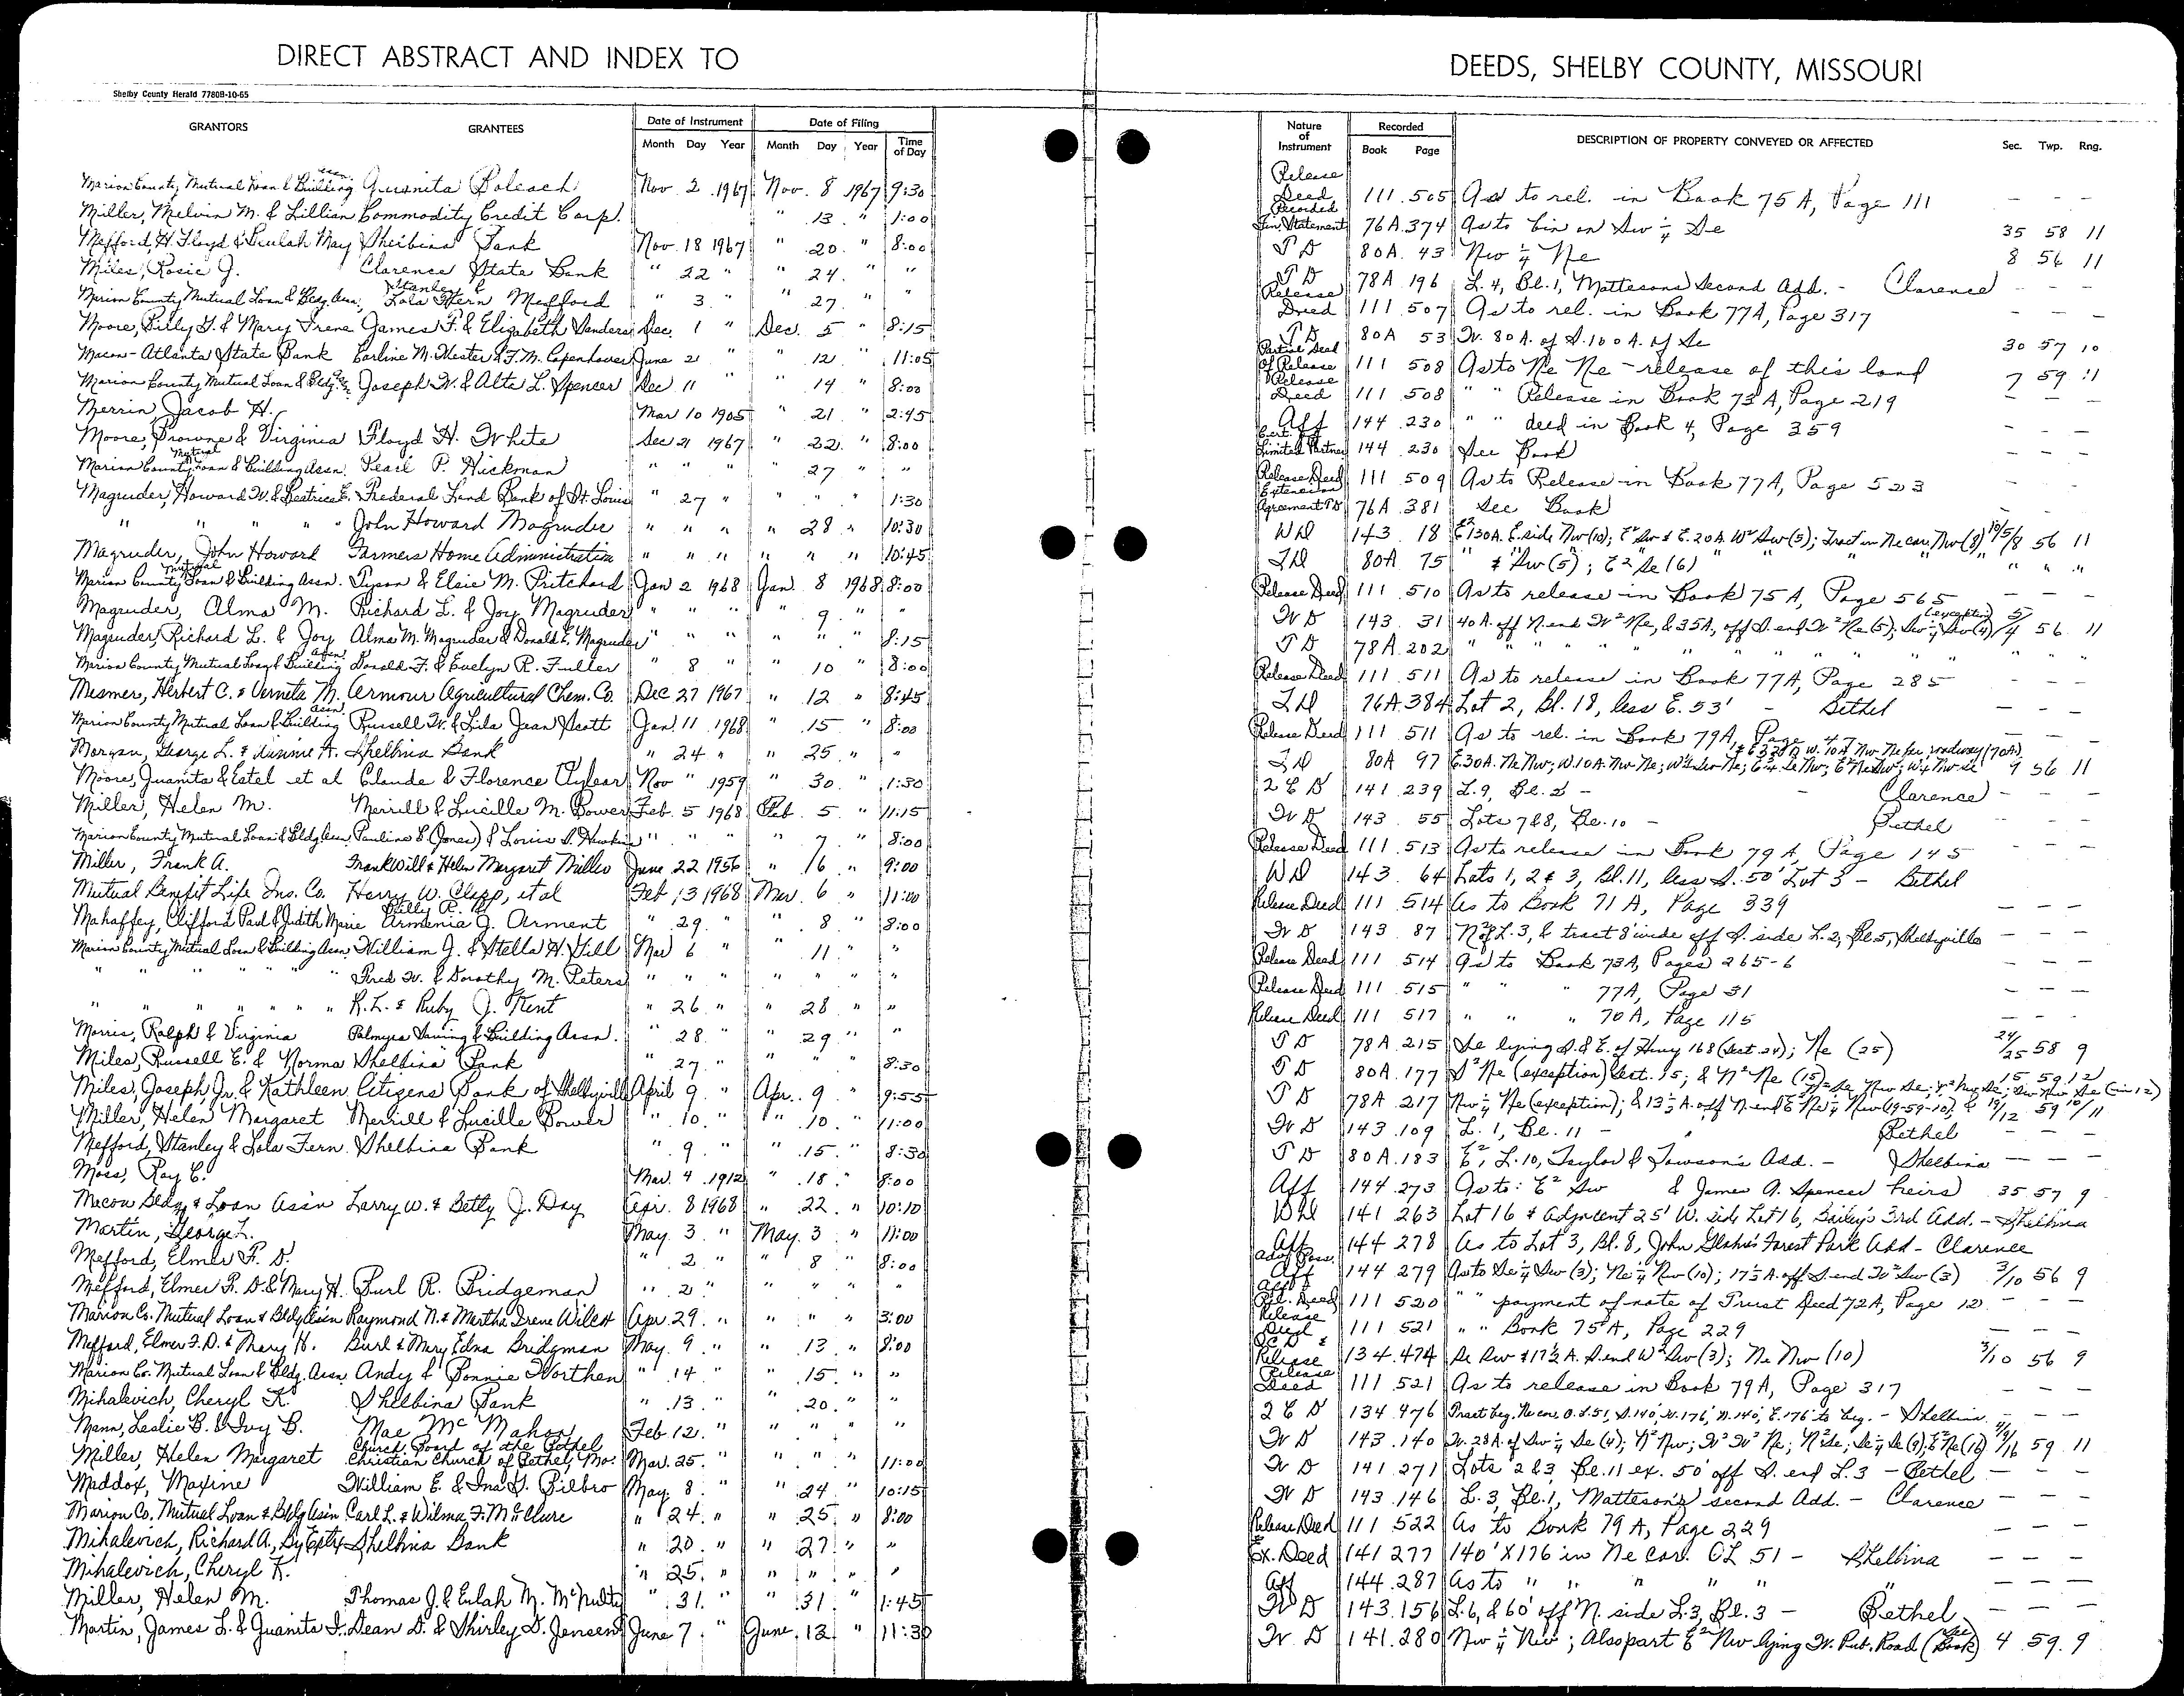 DIRECT ABSTRACT AND INDEX TO
DEEDS, SHELBY COUNTY, MISSOURI
Shelby County Herald 7780B-10-65
GRANTORS GRANTEES Date of Instrument Month Day Year Date of Filing Month Day Year Time of Day
Nature of Instrument Recorded Book Page DESCRIPTION OF PROPERTY CONVEYED OR AFFECTED Sec. Twp. Rng.
Marion County Mutual Loan & Building Assn. Juanita Nov 2 1967 Nov. 8 1967 9:30 Release Deed 111 505 As to rel. in Book 75A, Page 111 - - -
Miller, Melvin M. & Lillian Commodity Credit Corp. " 13 " 1:00 Recorded Fin Statement 76A 374 As to bin on Sw 1/4 Se 35 58 11
Mefford, H. Floyd & Beulah May Shelbina Bank Nov. 18 1967 " 20 " 8:00 T D 80A 43 Nw 1/4 Ne 8 56 11
Miles, Rosie J. Clarence State Bank " 22 " " 24 " " T D 78A 196 L. 4, Bl. 1, Mattesons Second Add. - Clarence - - -
Marion County Mutual Loan & Bldg. Assn. Stanley & Lola Fern Mefford " 3 " " 27 " " Release Deed 111 507 As to rel. in Book 77A, Page 317 - - -
Moore, Billy G. & Mary Irene James F. & Elizabeth Sanders Dec. 1 " Dec. 5 " 8:15 T D 80A 53 W. 80 A. of S. 100 A. of Se 30 57 10
Macon-Atlanta State Bank Carline M. Hester & F. M. Copenhaver June 21 " " 12 " 11:05 Partial Deed of Release 111 508 As to Ne Ne - release of this land 7 59 11
Marion County Mutual Loan & Bldg. Assn. Joseph W. & Alta L. Spencer Dec 11 " " 14 " 8:00 Release Deed 111 508 " " Release in Book 73A, Page 219 - - -
Merrin, Jacob H. Mar 10 1905 " 21 " 2:45 Aff 144 230 " " deed in Book 4, Page 359 - - -
Moore, Browne & Virginia Floyd H. White Dec 21 1967 " 22 " 8:00 Cert. of Limited Partner 144 230 See Book - - -
Marion County Mutual Loan & Building Assn. Pearl P. Hickman " " " " 27 " " Release Deed 111 509 As to Release in Book 77A, Page 523 - - -
Magruder, Howard W. & Beatrice E. Federal Land Bank of St. Louis " 27 " " " " 1:30 Extension Agreement TD 76A 381 See Book - - -
" " " " " John Howard Magruder " " " " 28 " 10:30 WD 143 18 E 130A. E. side Nw(10); E2 Sw & E. 20A. W2 Sw(5); Tract in Ne cor. Nw(8) 10/5/8 56 11
Magruder, John Howard Farmers Home Administration " " " " " " 10:45 TD 80A 75 " & Sw(5); E2 Se(6) " " " " " "
Marion County Mutual Loan & Building Assn. Tyson & Elsie M. Pritchard Jan 2 1968 Jan. 8 1968 8:00 Release Deed 111 510 As to release in Book 75A, Page 565 - - -
Magruder, Alma M. Richard L. & Joy Magruder " " " " 9 " " W D 143 31 40 A. off N. end W2 Ne, & 35A, off S. end W2 Ne(5); Sw 1/4 Sw(4) (exception) 5/4 56 11
Magruder, Richard L. & Joy Alma M. Magruder & Donald E. Magruder " " " " " " 8:15 T D 78A 202 " " " " " " " " "
Marion County Mutual Loan & Building Assn. Donald F. & Evelyn R. Fuller " 8 " " 10 " 8:00 Release Deed 111 511 As to release in Book 77A, Page 285 - - -
Mesmer, Herbert C. & Verneta M. Armour Agricultural Chem. Co. Dec 27 1967 " 12 " 8:45 TD 76A 384 Lot 2, Bl. 18, less E. 53' - Bethel - - -
Marion County Mutual Loan & Building Assn. Russell W. & Lila Jean Scott Jan. 11 1968 " 15 " 8:00 Release Deed 111 511 As to rel. in Book 79A, Page 47 - - -
Morgan, George L. & Minnie A. Shelbina Bank " 24 " " 25 " " TD 80A 97 E. 30A. Ne Nw; W. 10A. Nw Ne; 9 56 11
Moore, Juanita & Estel et al Claude & Florence Nov " 1959 " 30 " 1:30 2 E D 141 239 L. 9, Bl. 2 - - Clarence - - -
Miller, Helen M. Merrill & Lucille M. Bower Feb. 5 1968 Feb. 5 " 11:15 W D 143 55 Lots 7&8, Bl. 10 - Bethel - - -
Marion County Mutual Loan & Bldg Assn. Pauline E. (Jones) & Louis S. Hawkins " " " " 7 " 8:00 Release Deed 111 513 As to release in Book 79A, Page 145 - - -
Miller, Frank A. Frank Will & Helen Margaret Miller June 22 1956 " 16 " 9:00 WD 143 64 Lots 1, 2 & 3, Bl. 11, less S. 50' Lot 3 - Bethel
Mutual Benefit Life Ins. Co. Harry W. Clapp, et al Feb 13 1968 Mar. 6 " 11:00 Release Deed 111 514 As to Book 71A, Page 339 - - -
Mahaffey, Clifford Paul & Judith Marie Billy R. & Armenia J. Arment " 29 " " 8 " 8:00 W D 143 87 L. 3, & tract 8' wide off S. side L. 2, Bl. 5, Shelbyville
Marion County Mutual Loan & Building Assn. William J. & Stella H. Hill Mar 6 " " 11 " " Release Deed 111 514 As to Book 73A, Pages 265-6 - - -
" " " " " " Fred W. & Dorothy M. Peters " " " " " " " Release Deed 111 515 " " " 77A, Page 31 - - -
" " " " " " R. L. & Ruby J. Kent " 26 " " 28 " " Release Deed 111 517 " " " 70A, Page 115 - - -
Morris, Ralph & Virginia Palmyra Saving & Building Assn. " 28 " " 29 " " T D 78A 215 Se lying S. & E. of Hiwy 168 (Sect. 24); Ne (25) 24/25 58 9
Miles, Russell E. & Norma Shelbina Bank " 27 " " " " 8:30 T D 80A 177 S2 Ne (exception) Sect. 15; & N2 Ne (15) 15 59 12
Miles, Joseph Jr. & Kathleen Citizens Bank of Shelbyville April 9 " Apr. 9 " 9:55 T D 78A 217 Nw 1/4 Ne (exception); & 13 1/2 A. off N. end E2 Ne 1/4 Nw (19-59-10); & 19/12 59 10/11
Miller, Helen Margaret Merrill & Lucille Bower " 10 " " 10 " 11:00 W D 143 109 L. 1, Bl. 11 - Bethel - - -
Mefford, Stanley & Lola Fern Shelbina Bank " 9 " " 15 " 8:30 T D 80A 183 E2, L. 10, Taylor & Towson's Add. - Shelbina - - -
Moss, Ray C. Mar. 4 1912 " 18 " 8:00 Aff 144 273 As to: E2 Sw & James A. Spencer heirs 35 57 9
Macon Bldg & Loan Ass'n Larry W. & Betty J. Day Apr. 8 1968 " 22 " 10:10 WD 141 263 Lot 16 & Adjacent 25' W. side Lot 16, Bailey's 3rd Add. - Shelbina
Martin, George L. May 3 " May 3 " 11:00 Aff 144 278 As to Lot 3, Bl. 8, John Forest Park Add - Clarence
Mefford, Elmer F. D. " 2 " " 8 " 8:00 Adv. Poss. Aff 144 279 As to Se 1/4 Sw (3); Ne 1/4 Nw (10); 17 1/2 A. off S. end W2 Sw (3) 3/10 56 9
Mefford, Elmer F. D. & Mary H. Burl R. Bridgeman " 2 " " " " " Aff & Rel. Deed 111 520 " " payment of note of Trust Deed 72A, Page 12 - - -
Marion Co. Mutual Loan & Bldg Ass'n Raymond N. & Martha Irene Wilcox Apr. 29 " " " " 3:00 Release Deed 111 521 " " Book 75A, Page 229 - - -
Mefford, Elmer F. D. & Mary H. Burl & Mary Edna Bridgman May 9 " " 13 " 8:00 QCD & Release 134 474 Se Sw & 17 1/2 A. S. end W2 Sw (3); Ne Nw (10) 3/10 56 9
Marion Co. Mutual Loan & Bldg. Assn. Andy & Bonnie Worthen " 14 " " 15 " " Release Deed 111 521 As to release in Book 79A, Page 317 - - -
Mihalevich, Cheryl K. Shelbina Bank " 13 " " 20 " " 2 E D 134 476 Tract beg. Ne cor. O. L. 51, S. 140', W. 176', N. 140', E. 176' to beg. - Shelbina
Mann, Leslie B. & Ivy B. Mae McMahon Feb. 12 " " " " " W D 143 140 W. 28A. of Sw 1/4 Se (4); N2 Nw; W2 W2 Ne; N2 Se; Se 1/4 Se (9); E2 Ne (16) 4/9/16 59 11
Miller, Helen Margaret Church Board of the Bethel Christian Church of Bethel, Mo. Mar. 25 " " " " 11:00 W D 141 271 Lots 2&3, Bl. 11 ex. 50' off S. end L. 3 - Bethel - - -
Maddox, Maxine William E. & Ina Bilbro May 8 " " 24 " 10:15 W D 143 146 L. 3, Bl. 1, Matteson's second Add. - Clarence - - -
Marion Co. Mutual Loan & Bldg Ass'n Carl L. & Wilma F. McClure " 24 " " 25 " 8:00 Release Deed 111 522 As to Book 79A, Page 229 - - -
Mihalevich, Richard A., By Extx Shelbina Bank " 20 " " 27 " " Ex. Deed 141 277 140' X 176 in Ne cor. OL 51 - Shelbina - - -
Mihalevich, Cheryl K. " 25 " " " " " Aff 144 287 As to " " " " " " - - -
Miller, Helen M. Thomas J. & Eulah M. McNulty " 31 " " 31 " 1:45 W D 143 156 L. 6, & 60' off N. side L. 3, Bl. 3 - Bethel - - -
Martin, James L. & Juanita I. Dean D. & Shirley D. Jensen June 7 " June 12 " 11:30 W D 141 280 Nw 1/4 Nw; Also part E2 Nw lying W. Pub. Road (See Book) 4 59 9